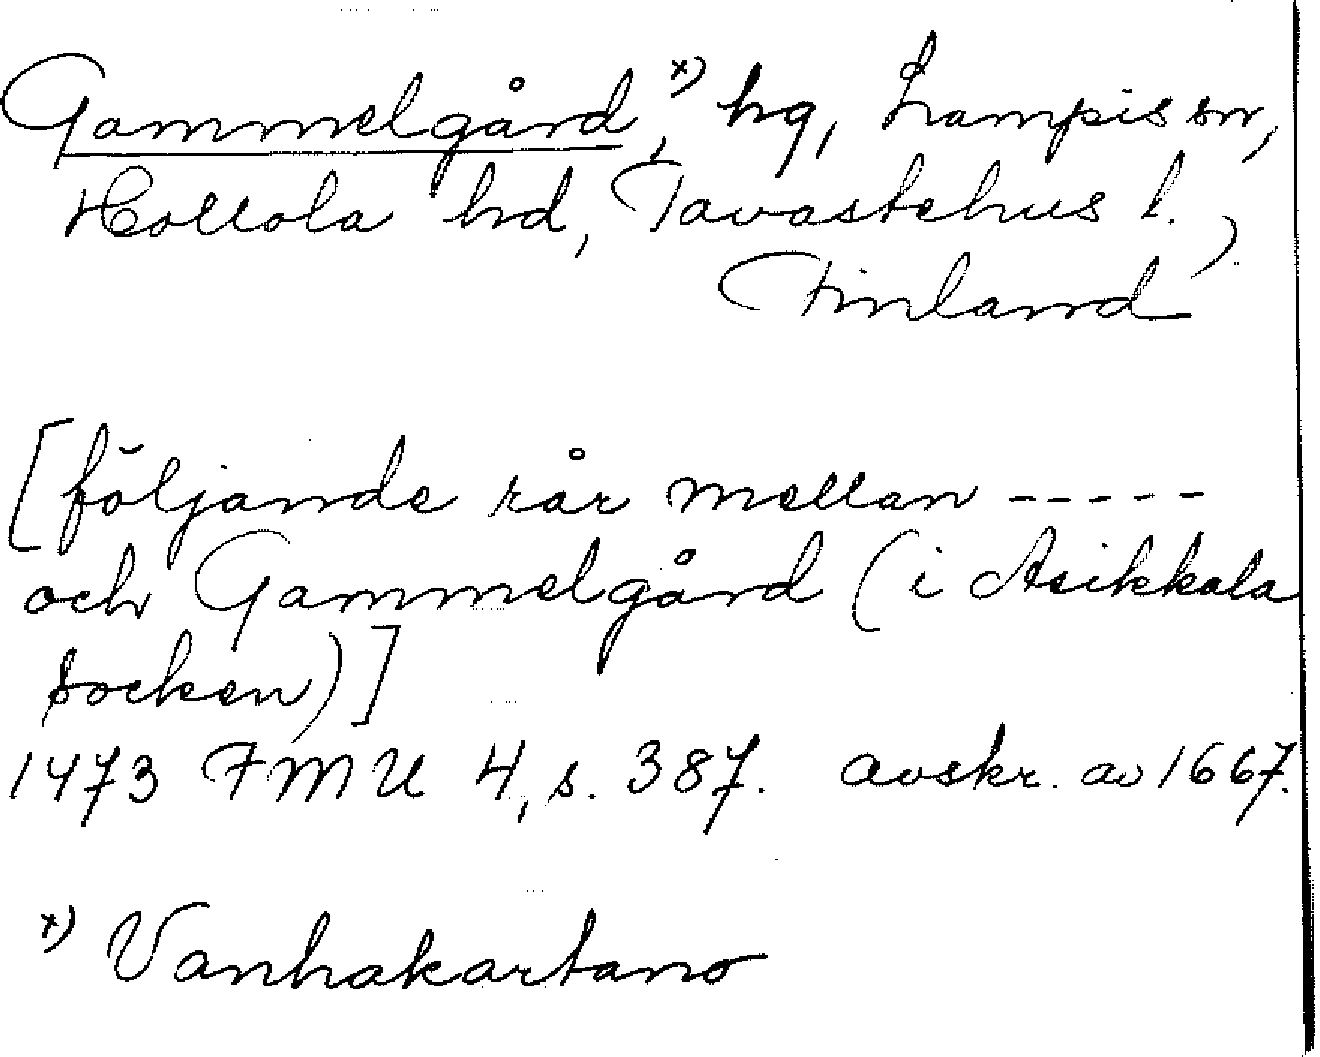 Gammelgård, x) hg, Lampis sn,
Hollola hd, Tavastehus l.,
Finland
[följande rår mellan -----
och Gammelgård (i Asikkala
socken)]
1473 FMU 4, s. 387. avskr. av 1667.
x) Vanhakartano